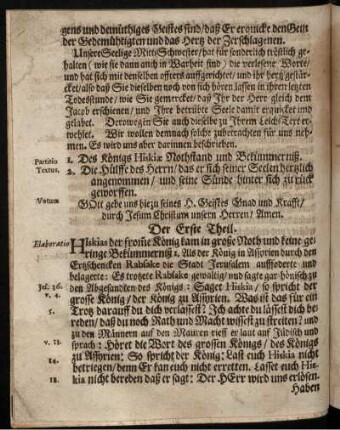 gens und demüthiges Geistes sind/ daß Er erquicke den Geist
der Gedemühtigten und das Hertz der Zerschlagenen.
Unsere Seelige Mitt-Schwester/ hat für sonderlich tröstlich ge-
halten/ wie sie dann auch in Warheit sind/ die verlesene Worte/
und hat sich mit denselben öffters auffgerichtet/ und ihr Hertz gestär-
cket/ also daß Sie dieselben noch von sich hören lassen in ihrer letzten
Todesstunde/ wie Sie gemercket/ daß Ihr der Herr gleich dem
Jacob erschienen/ und Ihre betrübte Seele damit erquicket und
gelabet. Derowegen Sie auch dieselbe zu Ihrem Leich-Text er-
wehlet. Wir wollen demnach solche zubetrachten für uns neh-
men. Es wird uns aber darinnen beschrieben.
Partitio Textus.
1. Des Königs Hiskiæ Nothstand und Bekümmerniß.
2. Die Hülffe des Herrn/ das er sich seiner Seelen hertzlich
angenommen/ und seine Sünde hinter sich zu rück
geworffen.
Votum
GOtt gebe uns hiezu seines H. Geistes Gnad und Krafft/
durch Jesum Christum unsern Herren/ Amen.
Der Erste Theil.
Elaboratio
Hiskias der fromme König kam in große Noth und keine ge-
ringe Bekümmerniß 1. Als der König in Assyrien durch den
Ertzschencken Rabsake die Stadt Jerusalem aufforderte und
belagerte: Es trotzete Rabsake gewaltig/ und sagte gar hönisch zu
Jes. 36. v. 4.
den Abgesandten des Königs: Saget Hiskia/ so spricht der
grosse König/ der König zu Assyrien: Was ist das für ein
5.
Trotz darauff du dich verlässest? Ich achte du lässest dich be-
reden/ daß du noch Rath und Macht wissest zu streiten? und
zu den Männern auf den Mauren rieff er laut auf Jüdisch und
v. 13.
sprach: Höret die Wort des grossen Königs/ des Königs
14.
zu Assyrien: So spricht der König: Last euch Hiskia nicht
betriegen/ denn Er kan euch nicht erretten. Lasset euch His-
18.
kia nicht bereden daß er sagt: Der HErr wird uns erlösen.
Haben